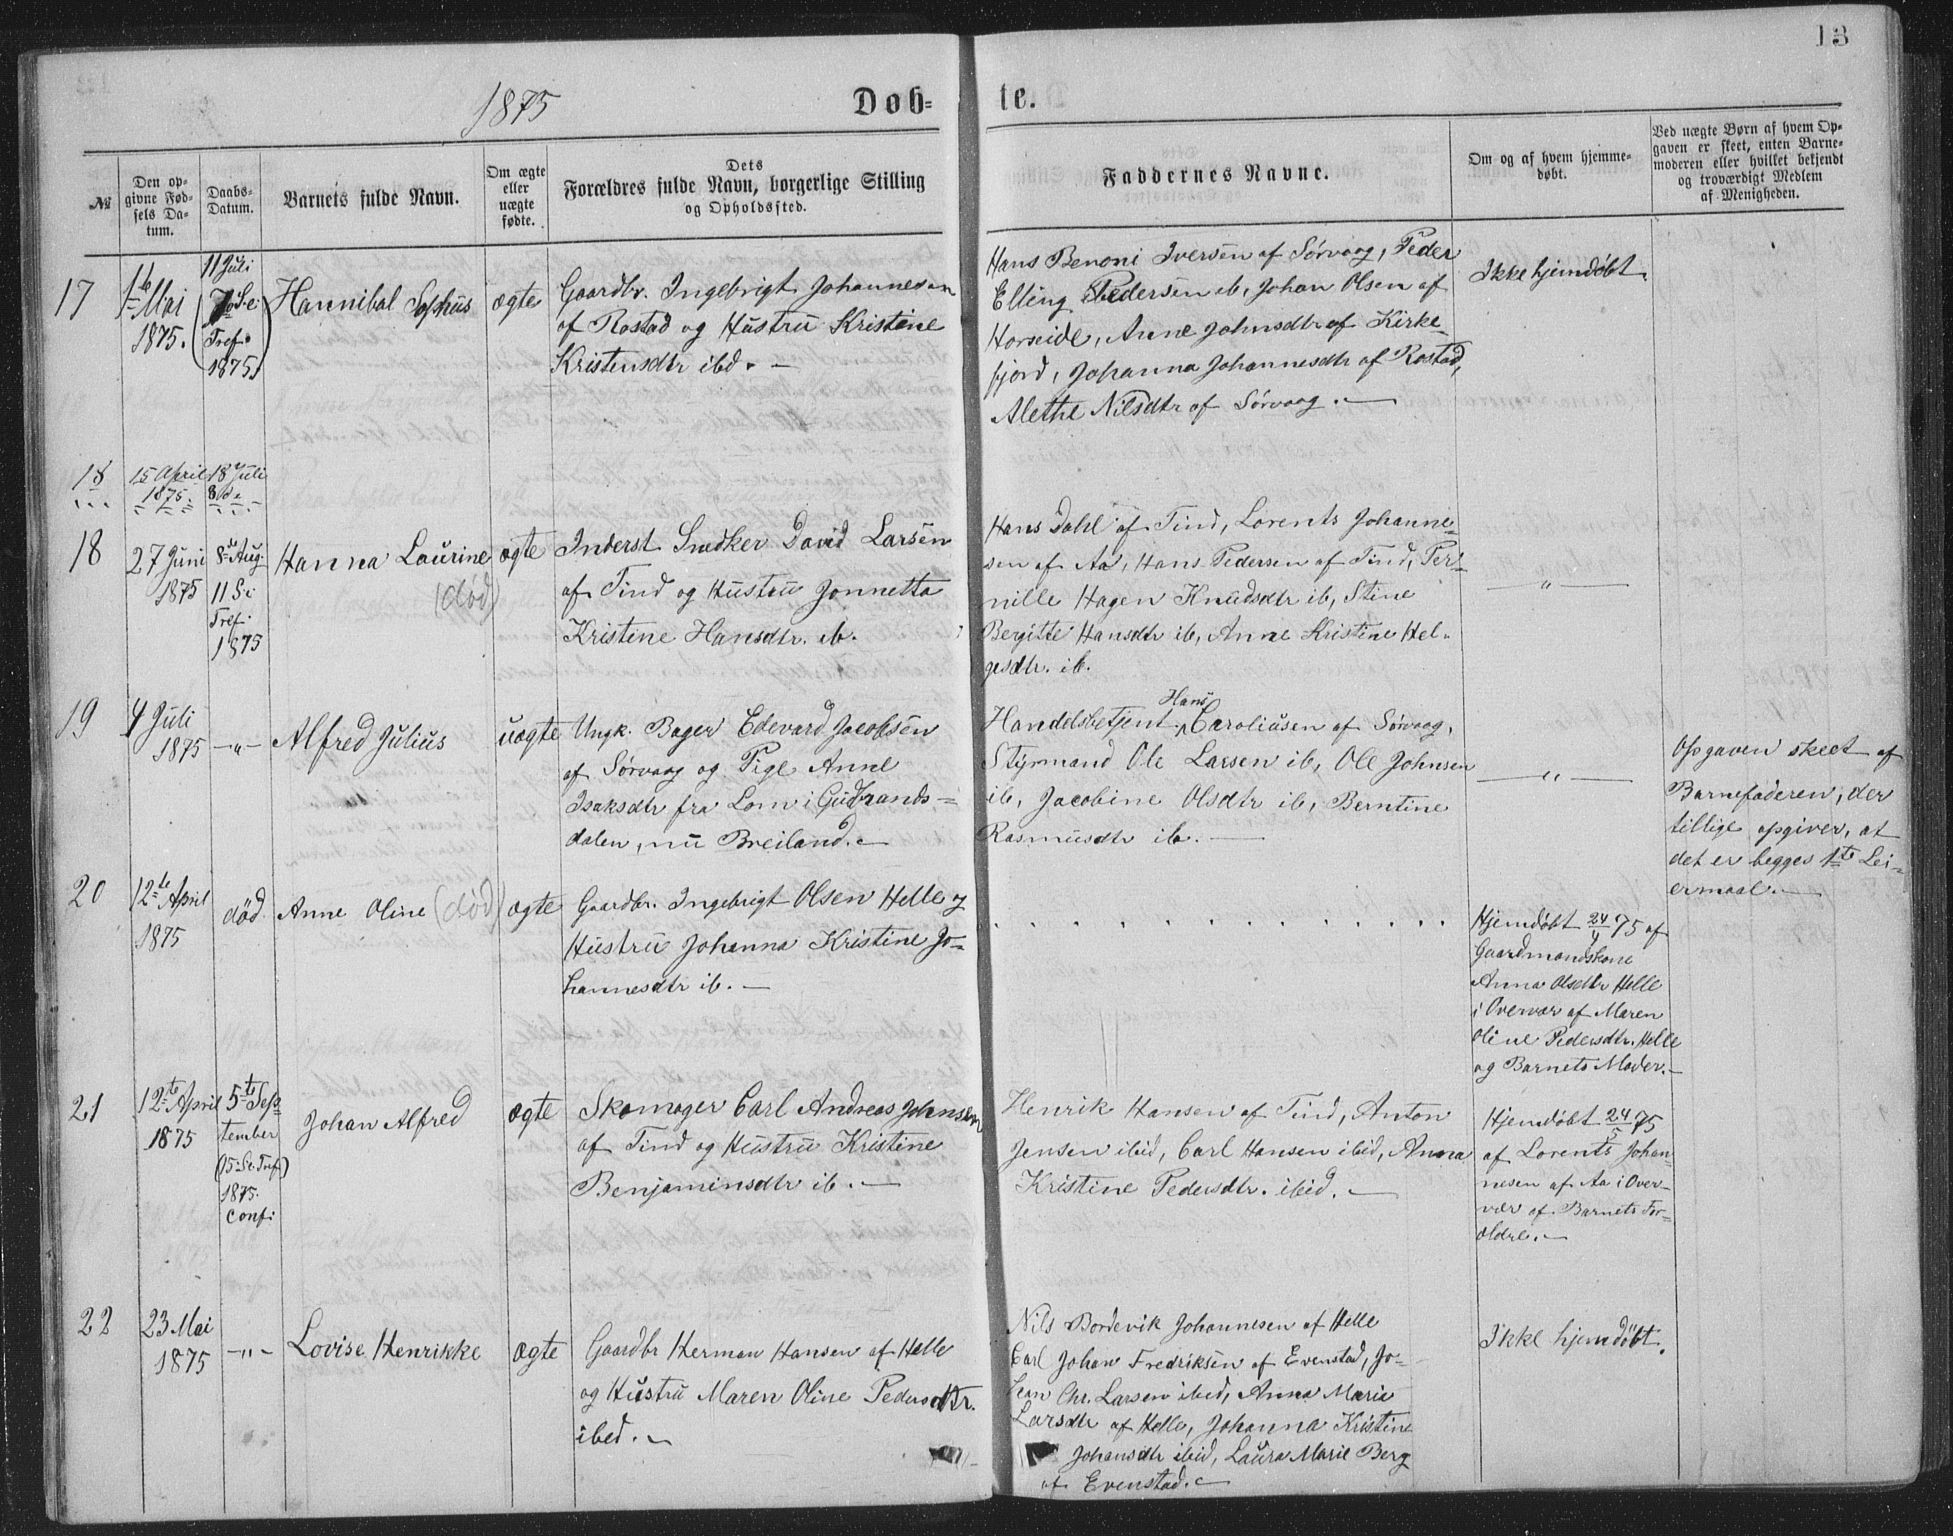 1875
Døb-
te.
13
№
Den op-
givne Fød-
sels Da-
tum.
Daabs-
Datum.
Barnets fulde Navn.
Om ægte
eller
uægte
fødte.
Dets
Forældres fulde Navn, borgerlige Stilling
og Opholdssted.
Faddernes Navne.
Om og af hvem hjemme-
døbt.
Ved uægte Børn af hvem Op-
gaven er skeet, enten Barne-
moderen eller hvilket bekjendt
og troværdigt Medlem
af Menigheden.
17
1te Mai
1875.
11 Juli
S. e.
Tref.
1875.
Hannibal Sophus
ægte
Gaardbr. Ingebrigt Johannesen
af Rostad og Hustru Kristine
Kristensdtr ibd. -
Hans Benoni Iversen af Sørvaag, Peder
Elling Pedersen ib, Johan Olsen af
Horseide, Anne Johnsdtr af Kirke-
fjord, Johanna Johannesdtr af Rostad,
Alethe Nilsdtr af Sørvaag. -
Ikke hjemdøbt.
18
15 April
1875.
18 Juli
18
27 Juni
1875
8de Aug.
11 S. e.
Tref.
1875
Hanna Laurine
(død)
ægte
Inderst Snedker David Larsen
af Tind og Hustru Jonnetta
Kristine Hansdtr. ib.
Hans Dahl af Tind, Lorents Johanne-
sen af Aa, Hans Pedersen af Tind, Per-
nille Hagen Knudsdtr ib, Stine
Bergitte Hansdtr ib, Anne Kristine Hel-
gesdtr. ib.
—„—
19
4 Juli
1875
-„-
Alfred Julius
uægte
Ungk. Bager Edevard Jacobsen
af Sørvaag og Pige Anne
Isaksdtr fra Lom i Gudbrands-
dalen, nu Breiland. -
Hans
Handelsbetjent Caroliusen af Sørvaag,
Styrmand Ole Larsen ib, Ole Johnsen
ib, Jacobine Olsdtr ib, Berntine
Rasmusdtr ib. -
—„—
Opgaven skeet af
Barnefaderen, der
tillige opgiver, at
det er begges 1te Lei-
ermaal. -
20
12te April
1875
død
Anne Oline (død)
ægte
Gaardbr. Ingebrigt Olsen Helle og
Hustru Johanna Kristine Jo-
hannesdtr ib. -
Hjemdøbt 24/4 75 af
Gaardmandskone
Anna Olsdtr Helle
i Overvær af Maren
Oline Pedersdtr. Helle
og Barnets Moder. -
21
12te April
1875
5te Sep-
tember
(15 S. e. Tref.)
1875.
Conf:
Johan Alfred
ægte
Skomager Carl Andreas Johnsen
af Tind og Hustru Kristine
Benjaminsdtr ib. -
Henrik Hansen af Tind, Anton
Jensen ibid, Carl Hansen ibid, Anna
Kristine Pedersdtr. ibid. -
Hjemdøbt 24/5 75
af Lorents Johan-
nesen af Aa i Over-
vær af Barnets For-
ældre. -
22
23 Mai
1875
-„-
Lovise Henrikke
ægte
Gaardbr Herman Hansen af Helle
og Hustru Maren Oline Pedersdtr.
ibid. -
Nils Bordevik Johannesen af Helle
Carl Johan Fredriksen af Evenstad, Jo-
han Chr. Larsen ibid, Anna Marie
Larsdtr af Helle, Johanna Kristine
Johansdtr ibid, Laura Marie Berg
af Evenstad. -
Ikke hjemdøbt.